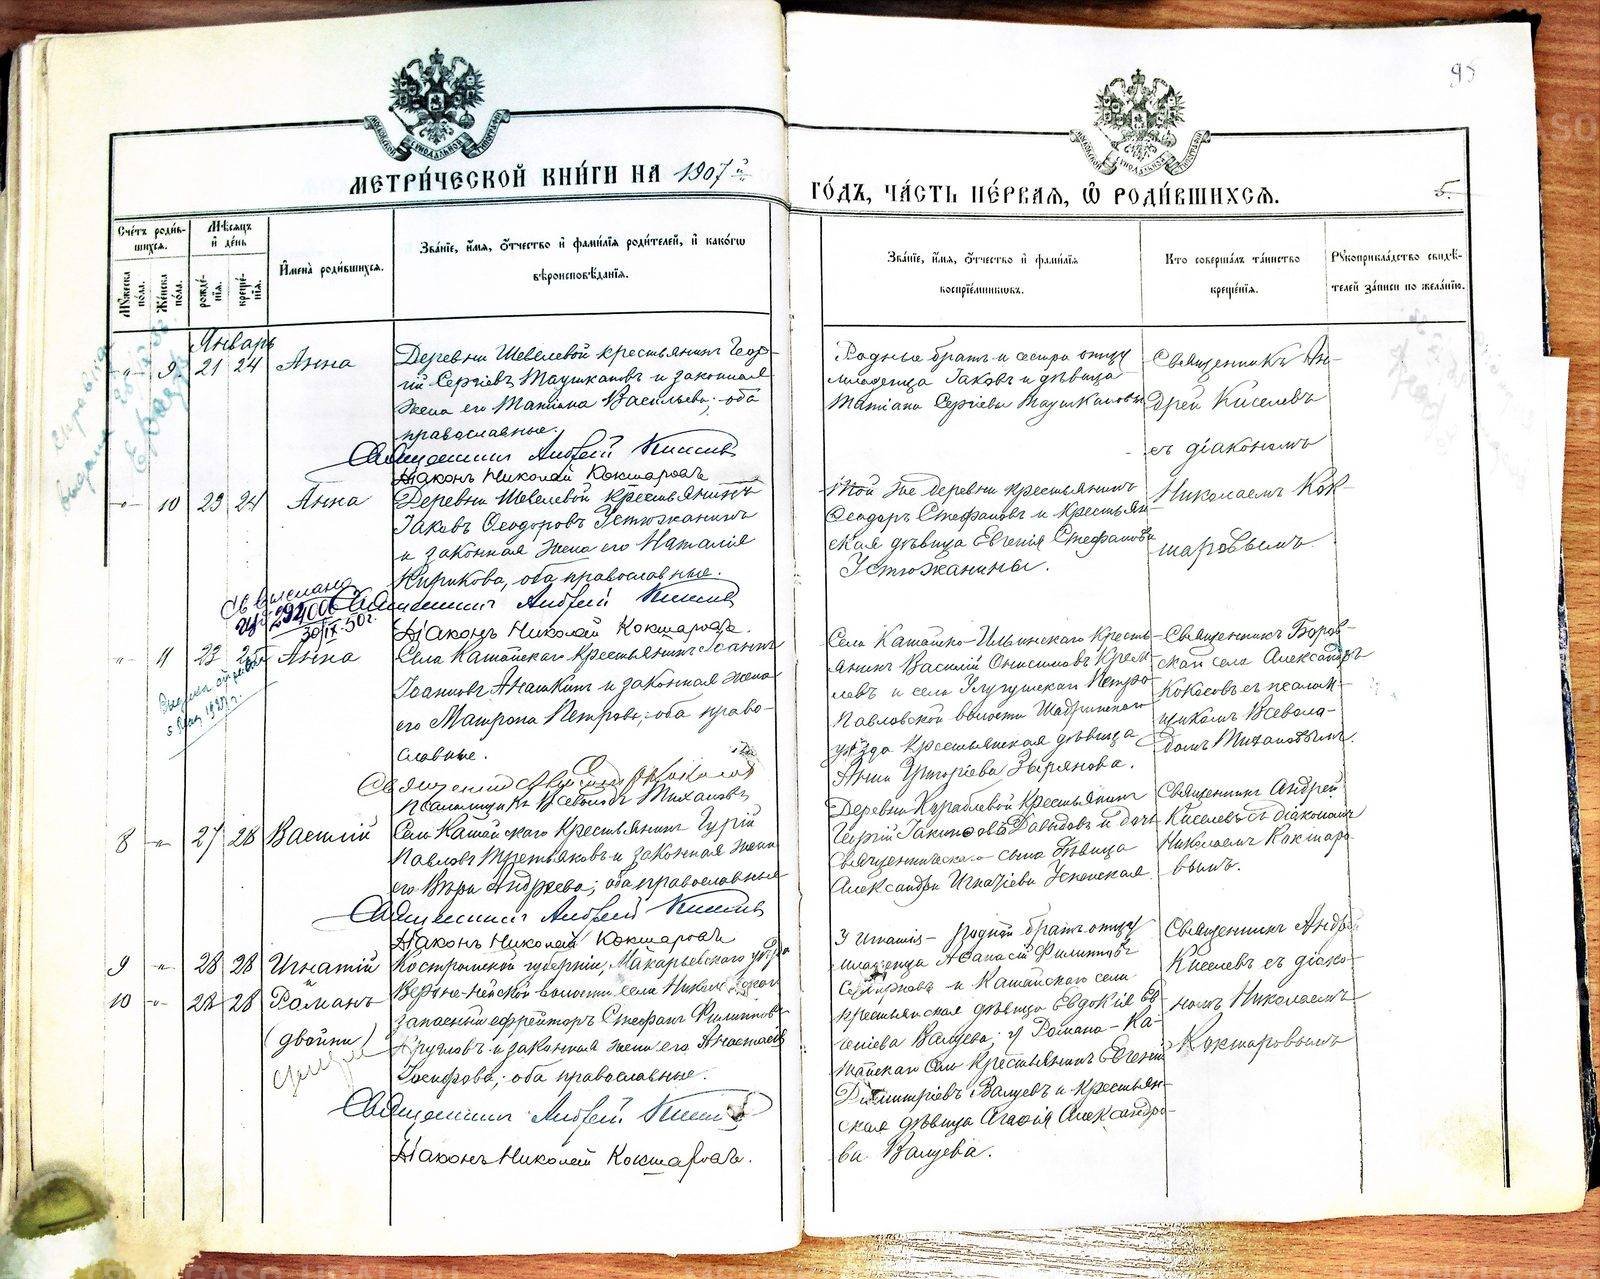 95
МЕТРИ́ЧЕСКОЙ КНИ́ГИ НА 1907й
ГО́ДЪ, ЧА́СТЬ ПЕ́РВАЯ, Ѡ҆ РОДИ́ВШИХСЯ.
5.
Сче́тъ роди́в-
шихся.
Мꙋ́жеска по́ла.
Же́нска по́ла.
Мѣ́сяцъ
и҆ де́нь
рожде́-
нїя.
креще́-
нїя.
И҆мена̀ роди́вшихся.
Зва́нїе, и҆́мя, ѻ҆́тчество и҆ фами́лїя роди́телей, и҆ како́гѡ
вѣроисповѣ́данїя.
Зва́нїе, и҆́мя, ѻ҆́тчество и҆ фами́лїя
воспрїе́мникѡвъ.
Кто̀ соверша́лъ та́инство
креще́нїя.
Рꙋкоприкла́дство свидѣ́-
телей за́писи по жела́нїю.
Январь
9 21 24 Анна
Деревни Шевелевой крестьянинъ Геор-
гій Сергіевъ Таушкановъ и законная
жена его Татіана Васильева; оба
православные.
Священникъ Андрей Киселевъ
Діаконъ Николай Кокшаровъ
Родные братъ и сестра отцу
младенца Іаковъ и дѣвица
Татіана Сергіевы Таушкановы
Священникъ Ан-
дрей Киселевъ
съ діакономъ
10 23 24 Анна
Деревни Шевелевой крестьянинъ
Іаковъ Ѳеодоровъ Устюжанинъ
и законная жена его Наталія
Кирикова, оба православные.
Священникъ Андрей Киселевъ
Діаконъ Николай Кокшаровъ.
Той же деревни крестьянинъ
Ѳеодоръ Стефановъ и крестьян-
ская дѣвица Евгенія Стефанова
Устюжанины.
Николаемъ Кок-
шаровымъ.
30/IX-50г.
11 23 25 Анна
Села Катайскаго крестьянинъ Іоаннъ
Іоанновъ Анашкинъ и законная жена
его Матрона Петрова; оба право-
славные.
Псаломщикъ Всеволодъ Тихановъ
Села Катайско-Ильинскаго кресть-
янинъ Василій Онисимовъ
и села
Павловской волости Шадринскаго
уѣзда крестьянская дѣвица
Анна Григоріева Зырянова.
Священникъ Боров-
ской села Александръ
Кокосовъ съ псалом-
щикомъ Всеволо-
домъ Тихановымъ.
8 27 28 Василій
Села Катайскаго крестьянинъ Гурій
Павловъ Третьяковъ и законная жена
его Вѣра Андреева; оба православные
Священникъ Андрей Киселевъ
Діаконъ Николай Кокшаровъ
Деревни Кораблевой крестьянинъ
Георгій Давыдовъ и дочь
Священническаго сына дѣвица
Александра Игнатіева Успенская.
Священникъ Андрей
Киселевъ съ діакономъ
Николаемъ Кокшаро-
вымъ.
9 28 28 Игнатій
и
10 28 28 Романъ
(двойни)
Костромской губерніи, Макарьевскаго уѣзда
Верхне-Нейской волости села
запасный ефрейторъ Стефанъ Филипповъ
Кругловъ и законная жена его Анастасія
Іосифова; оба православные.
Священникъ Андрей Киселевъ
Діаконъ Николай Кокшаровъ.
У Игнатія – родной братъ отцу
младенца Аѳанасій Филипповъ
и Катайскаго села
крестьянская дѣвица Евдокія Ев-
геніева Валуева; у Романа – Ка-
тайскаго села крестьянинъ Евгеній
Димитріевъ Валуевъ и крестьян-
ская дѣвица Агафія Александро-
ва Валуева.
Священникъ Андрей
Киселевъ съ діако-
номъ Николаемъ
Кокшаровымъ